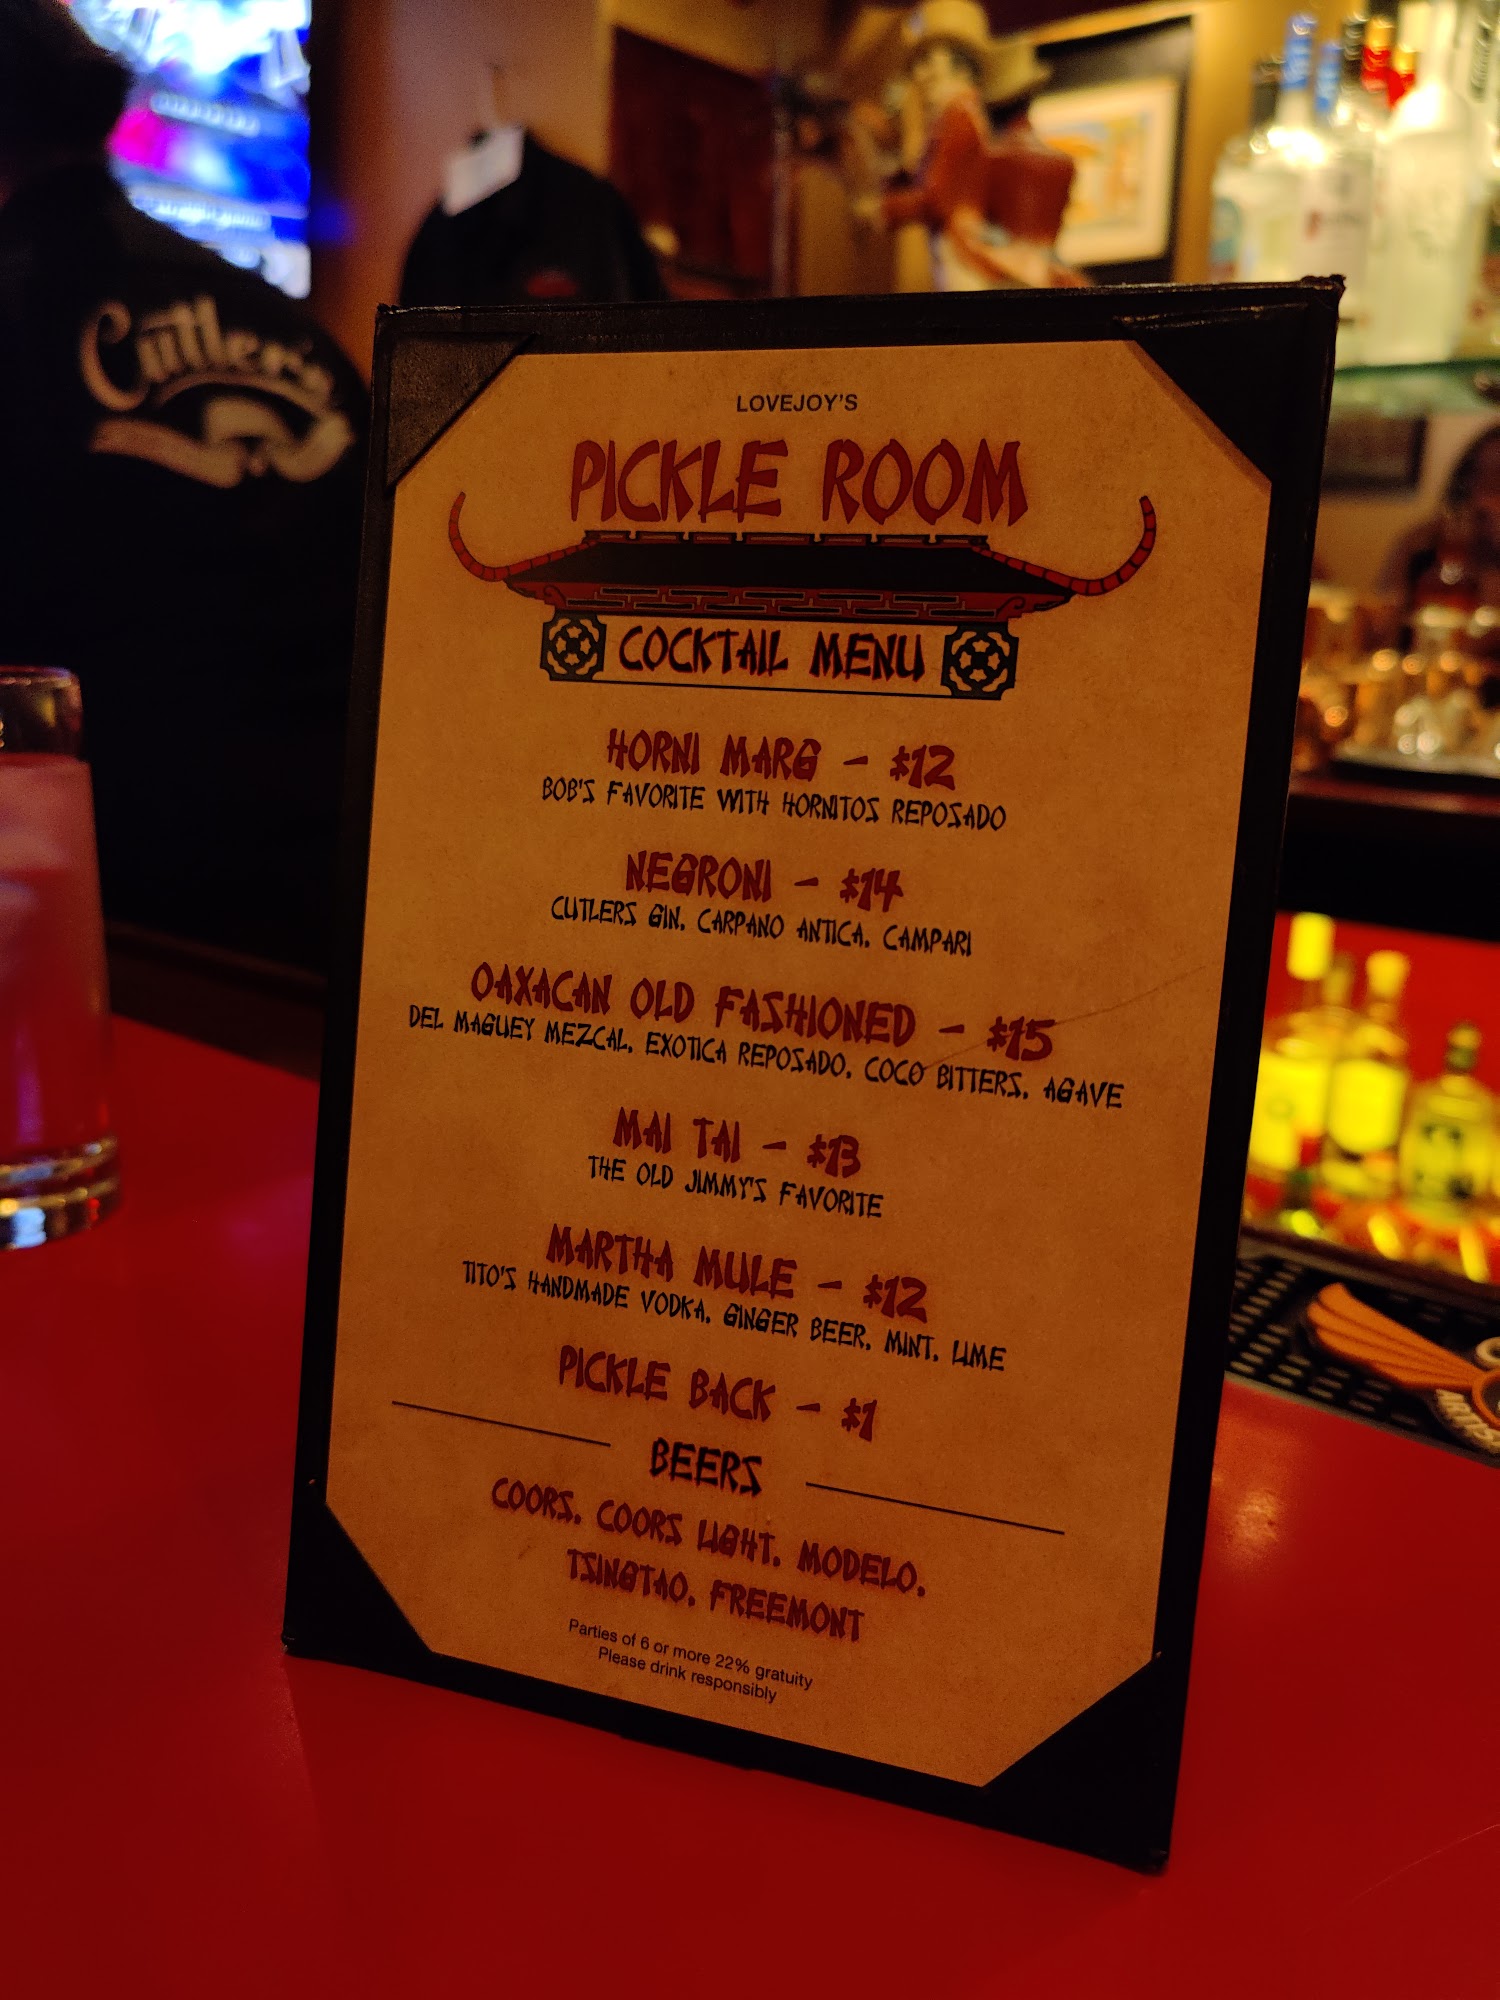 Cutler's
LOVEJOY'S
PICKLE ROOM
COCKTAIL MENU
HORNI MARG - $12
BOB'S FAVORITE WITH HORNITOS REPOSADO
NEGRONI - $14
CUTLERS GIN, CARPANO ANTICA, CAMPARI
OAXACAN OLD FASHIONED - $15
DEL MAGUEY MEZCAL, EXOTICA REPOSADO, COCO BITTERS, AGAVE
MAI TAI - $13
THE OLD JIMMY'S FAVORITE
MARTHA MULE - $12
TITO'S HANDMADE VODKA, GINGER BEER, MINT, LIME
PICKLE BACK - $1
BEERS
COORS, COORS LIGHT, MODELO,
TSINGTAO, FREEMONT
Parties of 6 or more 22% gratuity
Please drink responsibly